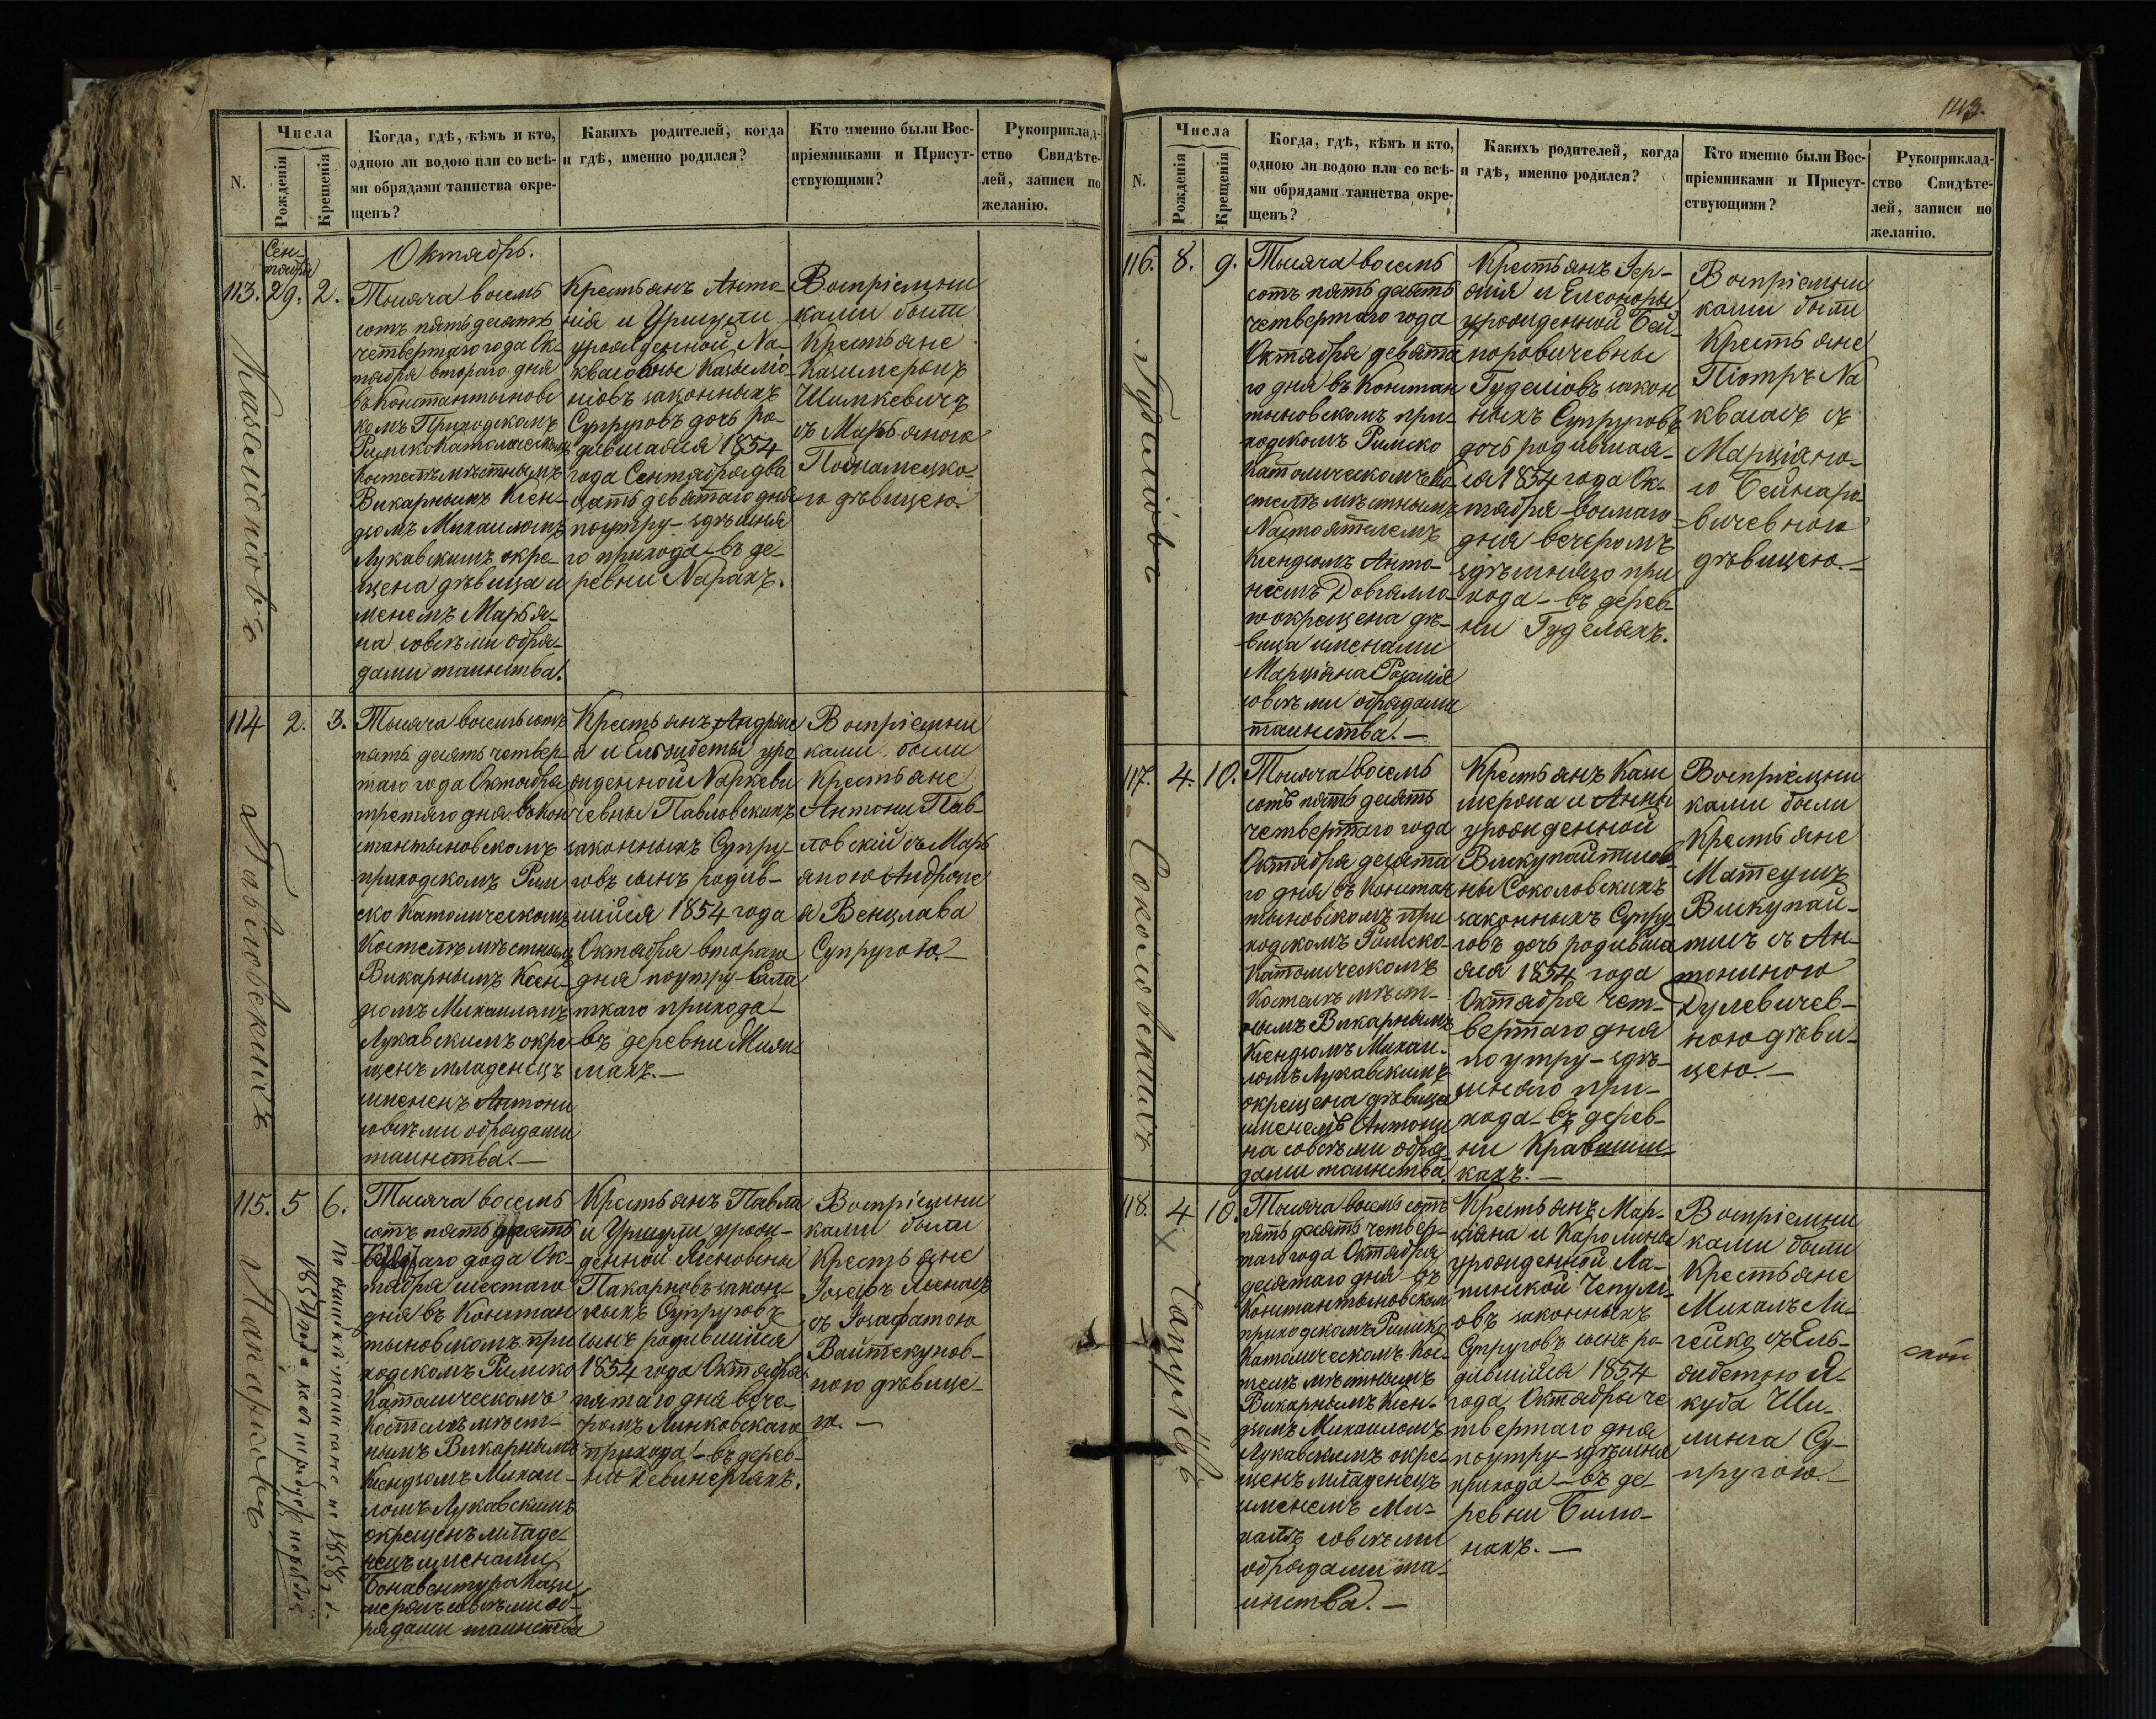 143.
N.
Числа
Рожденія
Крещенія
Когда, гдѣ, кѣмъ и кто,
одною ли водою или со всѣ-
ми обрядами таинства окре-
щенъ?
Какихъ родителей, когда
и гдѣ, именно родился?
Кто именно были Вос-
пріемниками и Присут-
ствующими?
Рукоприклад-
ство Свидѣте-
лей, записи по
желанію.
Сен-
тября
113. 29. 2.
Октябрь.
Тысяча восемь
сотъ пятьдесятъ
четвертаго года Ок-
тября втораго дня
въ Константынов
комъ Приходскомъ
Римско Католическомъ
Костелѣ мѣстнымъ
Викарнымъ Ксен-
дзомъ Михаиломъ
Лукавскимъ окре-
щена дѣвица и
менемъ Марья-
на совсѣми обря-
дами таинства.
Крестьянъ Анто-
нія и Уршули
урожденной На-
законныхъ
Супруговъ дочь ро-
дившаяся 1854
года Сентября два
цать девятаго дня
поутру - здѣшня
го прихода - въ де-
ревни Нарахъ.
Воспріемни
ками были
Крестьяне
Казимеръ
Шимкевичъ
съ Марьяною
го дѣвицею.
114 2. 3.
Павловскихъ
Тысяча восемь сотъ
пять десятъ четвер-
таго года Октября
третяго дня въ Кон
стантыновскомъ
приходскомъ Рим
ско Католическомъ
Костелѣ мѣстнымъ
Викарнымъ Ксен-
дзомъ Михаиломъ
Лукавскимъ окре-
щенъ младенецъ
именемъ Антони
совсѣми обрядами
таинства. —
Крестьянъ Андрже
а и Ельжбеты уро
жденной Наркеви
чевны Павловскихъ
законныхъ Супру-
говъ сынъ родив-
шійся 1854 года
Октября втораго
дня поутру - Сала
цкаго прихода -
въ деревни
махъ. —
Воспріемни
ками были
Крестьяне
Антони Пав-
ловскій съ Марь
яною Андрже
я Венцлава
Супругою. —
115. 5 6.
1854 года
по ошибкѣ написано не 1858 г.
Тысяча восемь
сотъ пять десятъ
таго года Ок-
тября шестаго
дня въ Констан
тыновскомъ при
ходскомъ Римско
Католическомъ
Костелѣ мѣст-
нымъ Викарнымъ
Ксендзомъ Михаи-
ломъ Лукавскимъ
окрещенъ младе-
нецъ именами
Бонавентура Кази
меръ совсѣми об-
рядами таинства
Крестьянъ Павла
и Уршули урож-
денной
закон-
ныхъ Супруговъ
сынъ родившійся
1854 года Октября
пятаго дня вече-
ромъ Линковскаго
прихода - въ дерев-
ни
Воспріемни
ками были
Крестьяне
Іосефъ
съ Іозафатою
Вайткунов-
ною дѣвице-
ю. —
N.
Числа
Рожденія
Крещенія
Когда, гдѣ, кѣмъ и кто,
одною ли водою или со всѣ-
ми обрядами таинства окре-
щенъ?
Какихъ родителей, когда
и гдѣ, именно родился?
Кто именно были Вос-
пріемниками и Присут-
ствующими?
Рукоприклад-
ство Свидѣте-
лей, записи по
желанію.
116. 8. 9.
Гуделіовъ
Тысяча восемь
сотъ пять десятъ
четвертаго года
Октября девята
го дня въ Констан
тыновскомъ при-
ходскомъ Римско
Католическомъ Ко-
стелѣ мѣстнымъ
Настоятелемъ
Ксендзомъ Анто-
ніемъ Довгялло-
ю окрещена дѣ-
вица именами
Марціяна Розалія
совсѣми обрядами
таинства. —
Крестьянъ Іер-
онія и Елеоноры
урожденной Бей-
норовичевны
Гуделіовъ закон
ныхъ Супруговъ
дочь родившая-
ся 1854 года Ок-
тября восмаго
дня вечеромъ
здѣшняго при
хода - въ дерев-
ни Гуделяхъ.
Воспріемни
ками были
Крестьяне
Піотръ На
квасъ съ
Марціяно-
ю Бейнаро-
вичевною
дѣвицею. —
117. 4. 10.
Соколовскихъ
Тысяча восемь
сотъ пять десятъ
четвертаго года
Октября десята
го дня въ Констан
тыновскомъ при
ходскомъ Римско-
Католическомъ
Костелѣ мѣст-
нымъ Викарнымъ
Ксендзомъ Михаи-
ломъ Лукавскимъ
окрещена дѣвица
именемъ Антони
на совсѣми обря-
дами таинства.
Крестьянъ Кази
мержа и Анны
урожденной
Вискупайтисов-
ны Соколовскихъ
законныхъ Супру-
говъ дочь родивша
яся 1854 года
Октября чет-
вертаго дня
поутру - здѣ-
шняго при-
хода - въ дерев-
ни Кравишш-
кахъ. —
Воспріемни
ками были
Крестьяне
Матеушъ
Вискупай-
тисъ съ Ан-
тониною
Дулевичев-
ною дѣви-
цею. —
118. 4 10.
Чапулёвъ
Тысяча восемь сотъ
пять десятъ четвер-
таго года Октября
десятаго дня въ
Константыновском
приходскомъ Римско
Католическомъ Кос-
телѣ мѣстнымъ
Викарнымъ Ксен-
дзомъ Михаиломъ
Лукавскимъ окре-
щенъ младенецъ
именемъ Ми-
халъ совсѣми
обрядами та-
инства. —
Крестьянъ Мар-
ціяна и Каролины
урожденной Ла-
пинской Чепулі-
овъ законныхъ
Супруговъ сынъ ро-
дившійся 1854
года Октября че
твертаго дня
поутру - здѣшня
прихода - въ де-
ревни Бимо-
нахъ. —
Воспріемни
ками были
Крестьяне
Михалъ Ли-
гейко съ Ель-
жбетою Я-
куба Ши-
линга Су-
пругою. —